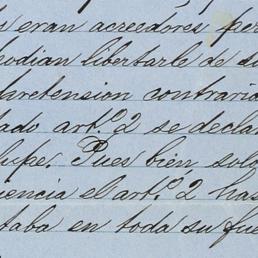 s eran acreedores per
podian libertarle de su
la retension contrario
tado art.º 2 se declar
lupe. Pues bien, solo
uencia el art.º 2 has
taba en toda su fue